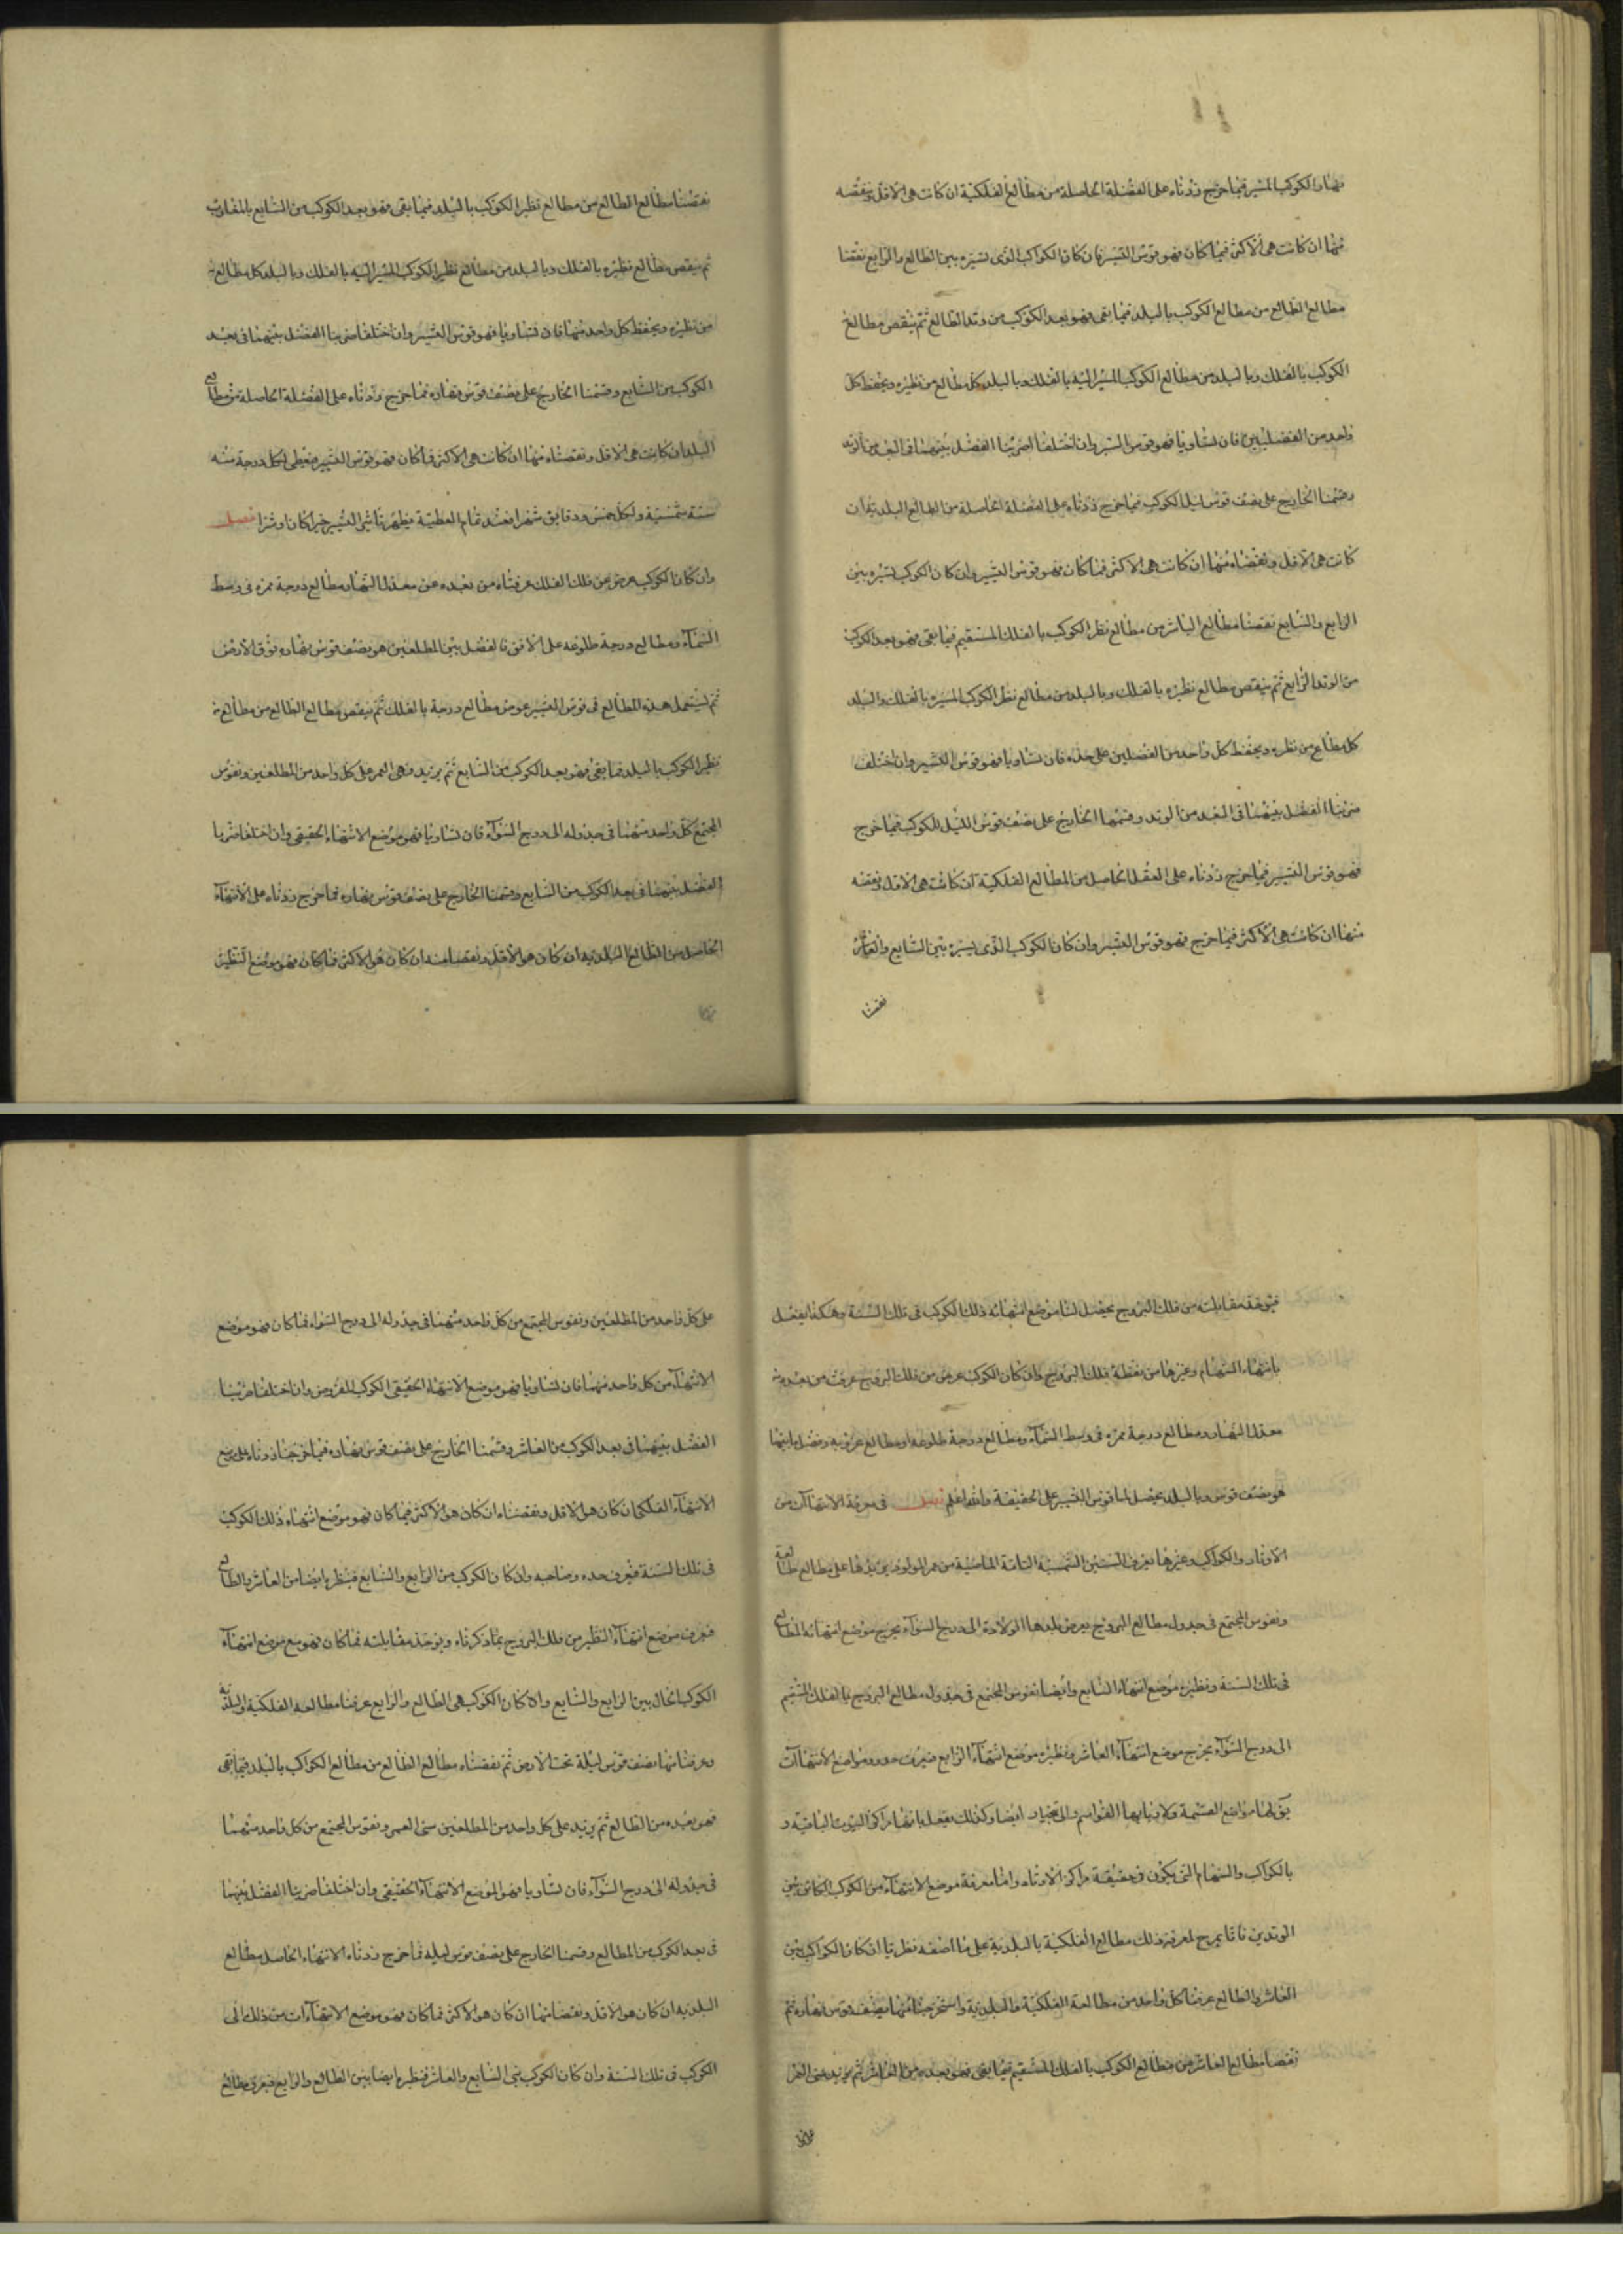 نهار الكوكب المسير فما خرج زدناه على الفضلة الحاصلة من مطالع الفلكية ان كانت هى الاقل وننقصه
منها ان كانت هى الاكثر فما كان فهو قوس التسير فان كان الكواكب الذى نسيره بين الطالع والرابع نقصنا
مطالع الطالع من مطالع الكوكب بالبلد فما بقى فهو بعد الكوكب من وتد الطالع ثم ينقص مطالع
الكوكب بالفلك وبالبلد من مطالع الكوكب المسير اليه بالفلك وبالبلد كل مطالع من نظيره ويحفظ كل
واحد من الفضلين فان تساويا فهو قوس التسير وان اختلفا ضربنا الفضل بينهما فى البعد من
وقسمنا الخارج على نصف قوس ليل الكوكب فما خرج زدناه على الفضلة الحاصلة من الطالع البلدية ان
كانت هى الاقل ونقصناه منها ان كانت هى الاكثر فما كان فهو قوس التسير وان كان الكوكب نسيره بين
الرابع والسابع نقصنا مطالع العاشر من مطالع نظر الكوكب بالفلك المستقيم فما بقى فهو بعد الكوكب
من الوتد الرابع ثم ينقص مطالع نظيره بالفلك وبالبلد من مطالع نظر الكوكب المسيره بالفلك والبلد
كل مطالع من نظره ويحفظ كل واحد من الفضلين على حده فان تساويا فهو قوس التسير وان اختلف
ضربنا الفضل بينهما فى البعد من الوتد وقسمنا الخارج على نصف قوس الليل للكوكب فما خرج
فهو قوس التسير فما خرج زدناه على الفضل الحاصل من المطالع الفلكية ان كانت هى الاقل ونقصه
منها ان كانت هى الاكثر فما خرج فهو قوس التسير وان كان الكوكب الذى يسيره بين السابع والعاشر
نقصنا
نقصنا مطالع الطالع من مطالع نظير الكوكب بالبلد فما بقى فهو بعد الكوكب من السابع بالمغارب
ثم ينقص مطالع نظيره بالفلك وبالبلد من مطالع نظير الكوكب المسير اليه بالفلك وبالبلد كل مطالع
من نظيره ويحفظ كل واحد منها فان تساويا فهو قوس التسير وان اختلفا ضربنا الفضل بينهما فى بعد
الكوكب من السابع وقسمنا الخارج على نصف قوس نهاره فما خرج زدناه على الفضلة الحاصلة من مطالع
البلد ان كانت هى الاقل ونقصناه منها ان كانت هى الاكثر فما كان فهو قوس التسير فيعطى لكل درجة سنة
سنة شمسية ولكل خمس دقايق شهرا فعند تمام العطية يظهر تاثير التسير خيرا كان او شرا فصل
وان كان الكوكب عرض عن فلك الفلك عرفناه من بعده عن معدل النهار ومطالع درجة ممره فى وسط
السماء ومطالع درجة طلوعه على الافق فالفضل بين المطلعين هو نصف قوس نهاره فوق الارض
ثم نستعمل هذه المطالع فى قوس التسير عوض مطالع درجة بالفلك ثم ينقص مطالع الطالع من مطالع
نظير الكوكب بالبلد فما بقى فهو بعد الكوكب من السابع ثم يزيد سنى العمر على كل واحد من المطلعين ونقوس
المجتمع كل واحد منهما فى جدوله الى درج السوآء فان تساويا فهو موضع الانتهاء الحقيقى وان اختلفا ضربنا
الفضل بينهما فى بعد الكوكب من السابع وقسمنا الخارج على نصف قوس نهاره فما خرج زدناه على الانتهآء
الحاصل من الطالع البلديه ان كان هو الاقل ونقصنا منه ان كان هو الاكثر فما كان فهو موضع النظير
فيؤخذ مقابلته من فلك البروج يحصل لنا موضع انتهائه ذلك الكوكب فى تلك السنة وهكذا يفعل
بانتهاء السهام وغيرها من نقطة فلك البروج وان كان الكوكب عرض من فلك البروج عرفت من بعده
معدل النهار ومطالع درجة ممره فى وسط السماء ومطالع درجة طلوعه او مطالع غروبه وفضل ما بينهما
هو نصف قوس وبالبلد يحصل لنا قوس التسير على الحقيقة والله اعلم فصل فى معرفة الانتهاآت من
الاوتار والكواكب وغيرها يعرف السنين الشمسية التامة الماضية من عمر المولود ثم يزيدها على مطالع طالعه
ونقوس المجتمع فى جدول مطالع البروج بعرض بلد هذا الولادة الى درج السوآء يخرج موضع انتهائه الطالع
فى تلك السنة ونظيره موضع انتهاء السابع وايضا نقوس المجتمع فى جدول مطالع البروج بالفلك المستقيم
الى درج السوآء يخرج موضع انتهآء العاشر ونظيره موضع انتهآء الرابع فيعرف حدود مواضع الانتهاآت
مواضع القسمة ولاربابها القواسم ايضا وكذلك يفعل مراكز البيوت الباقية و
بالكواكب والسهام التى يكون فى حقيقة مراكز الاوتاد واما معرفة موضع الانتهآء من الكوكب الكائن بين
الوتدين فانا نخرج لمعرفة ذلك مطالع الفلكية بالبلدية على ما اصفه نظرنا ان كان الكواكب بين
العاشر والطالع عرفنا كل واحد من مطالعه الفلكية والبلدية واستخرجنا منها نصف قوس نهاره ثم
نقصنا مطالع العاشر من مطالع الكوكب بالفلك المستقيم فما بقى فهو بعده من العاشر ثم يزيد سنى العمر
على كل
على كل واحد من المطلعين ونقوس المجتمع من كل واحد منهما فى جدوله الى درج السواء فما كان فهو موضع
الانتهآء من كل واحد منهما فان تساويا فهو موضع الانتهاء الحقيقى الكوكب المفروض وان اختلفا ضربنا
الفضل بينهما فى بعد الكوكب من العاشر وقسمنا الخارج على نصف قوس نهاره فما خرج زدناه على
الانتهآء الفلكى ان كان هو الاقل ونقصناه ان كان هو الاكثر فما كان فهو موضع انتهاء ذلك الكوكب
فى تلك السنة فيعرف حده وصاحبه وان كان الكوكب من الرابع والسابع فينظر ايضا من العاشر والطالع
فيعرف موضع انتهآء النظير من فلك البروج بما ذكرناه ويوخذ مقابلته فما كان فهو موضع انتهآء
الكوكب الحال بين الرابع والسابع وان كان الكوكب فى الطالع والرابع عرفنا مطالعه الفلكية والبلدية
وعرفنا منها نصف قوس ليله تحت الارض ثم نقصناه مطالع الطالع من مطالع الكواكب بالبلد فما بقى
فهو بعده من الطالع ثم يزيد على كل واحد من المطلعين سنى العمر ونقوس المجتمع من كل واحد منهما
فى جدوله الى درج السوآء فان تساويا فهو الموضع الانتهآء الحقيقى وان اختلفا ضربنا الفضل بينهما
فى بعد الكوكب من المطالع وقسمنا الخارج على نصف قوس ليله فما خرج زدناه الانتهاء الحاصل مطالع
البلديه ان كان هو الاقل ونقصناه منها ان كان هو الاكثر فما كان فهو موضع الانتهآءات من ذلك الى
الكوكب فى تلك السنة وان كان الكوكب فى السابع والعاشر فنظره ايضا بين الطالع والرابع فيعرف مطالع